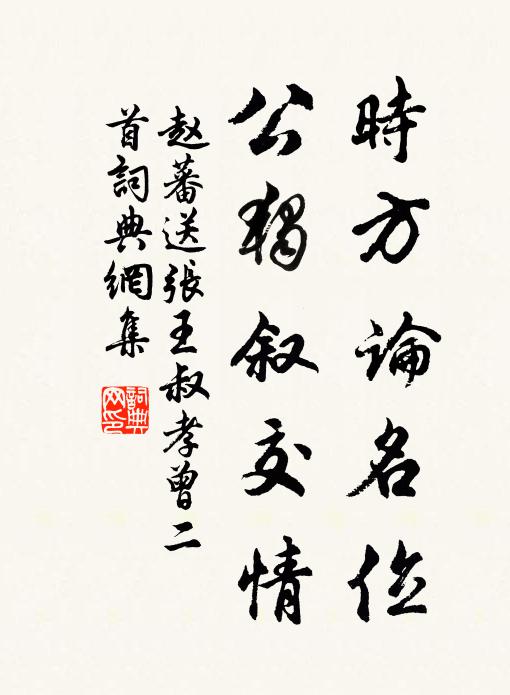 時方論名位
公獨叙交情
赵蕃送張王叔孝曾二
首詞典網集
詞典
网印